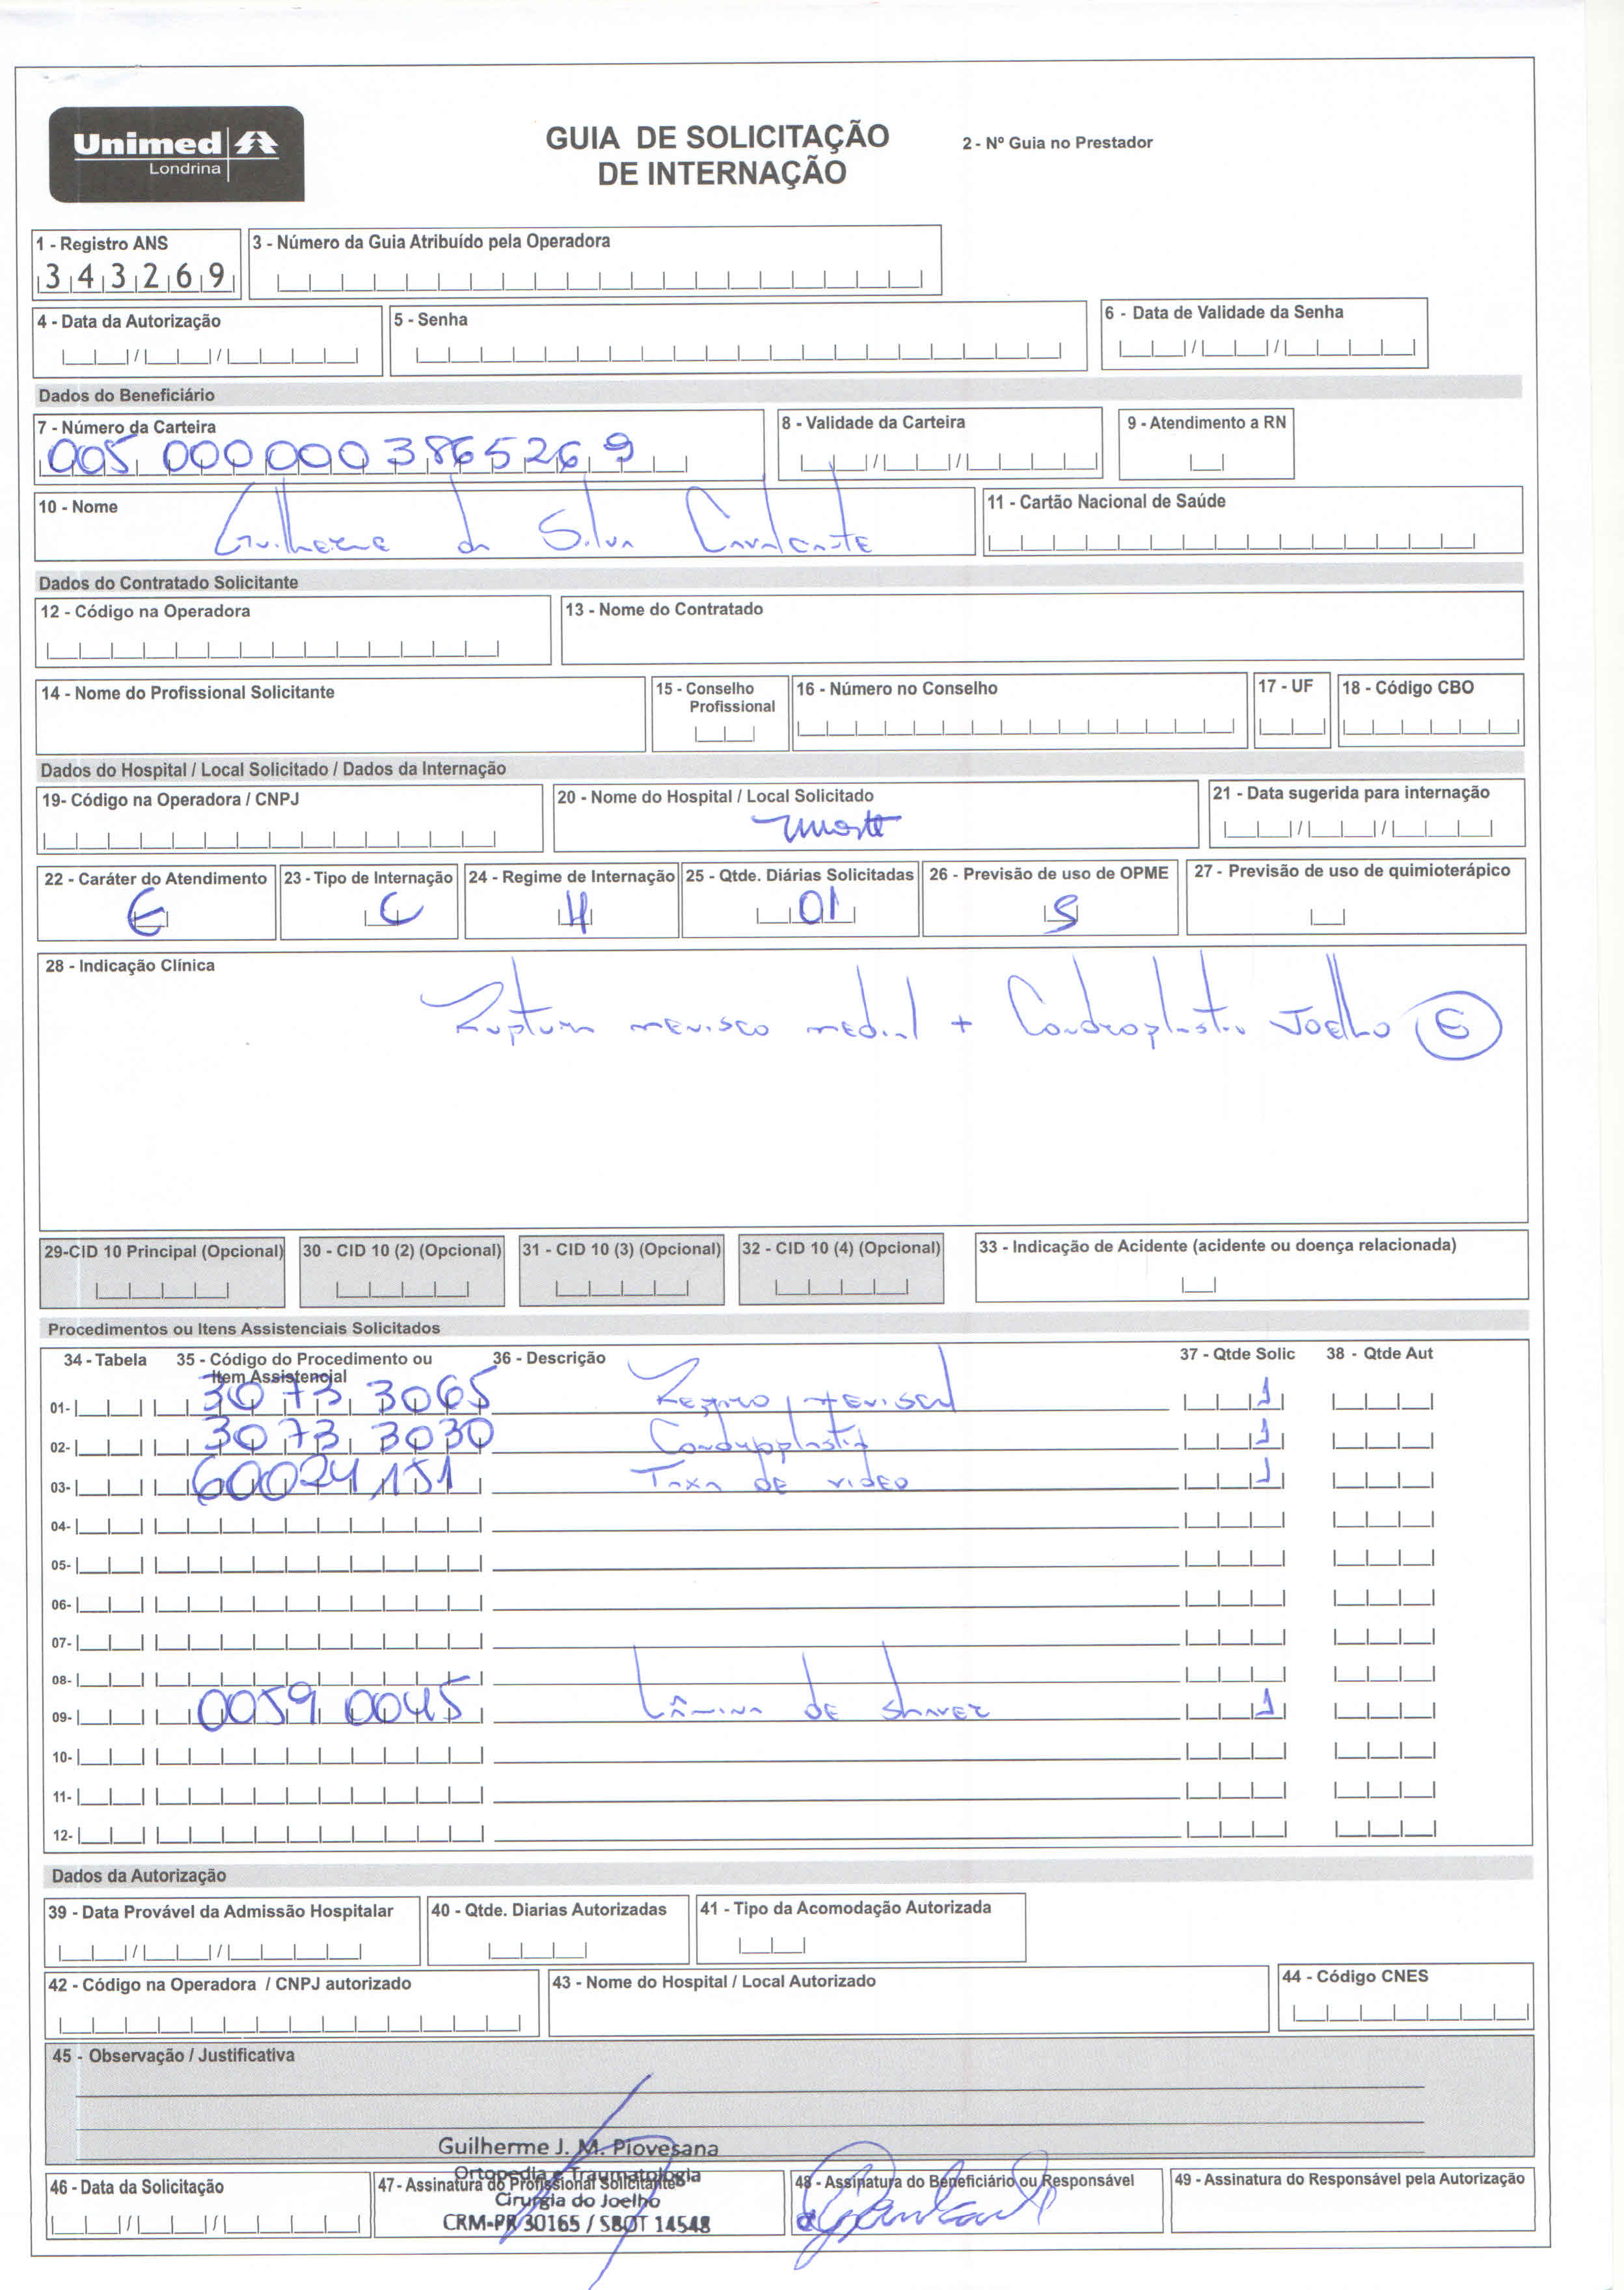 Unimed
Londrina
GUIA DE SOLICITAÇÃO
DE INTERNAÇÃO
2 - Nº Guia no Prestador
1 - Registro ANS
343269
3 - Número da Guia Atribuído pela Operadora
4 - Data da Autorização
5 - Senha
6 - Data de Validade da Senha
Dados do Beneficiário
7 - Número da Carteira
005 0000003865269
8 - Validade da Carteira
9 - Atendimento a RN
10 - Nome
Guilherme da Silva Cavalcante
11 - Cartão Nacional de Saúde
Dados do Contratado Solicitante
12 - Código na Operadora
13 - Nome do Contratado
14 - Nome do Profissional Solicitante
15 - Conselho
Profissional
16 - Número no Conselho
17 - UF
18 - Código CBO
Dados do Hospital / Local Solicitado / Dados da Internação
19- Código na Operadora / CNPJ
20 - Nome do Hospital / Local Solicitado
21 - Data sugerida para internação
22 - Caráter do Atendimento
E
23 - Tipo de Internação
C
24 - Regime de Internação
H
25 - Qtde. Diárias Solicitadas
01
26 - Previsão de uso de OPME
S
27 - Previsão de uso de quimioterápico
28 - Indicação Clínica
Ruptura menisco medial + Condroplastia Joelho E
29-CID 10 Principal (Opcional)
30 - CID 10 (2) (Opcional)
31 - CID 10 (3) (Opcional)
32 - CID 10 (4) (Opcional)
33 - Indicação de Acidente (acidente ou doença relacionada)
Procedimentos ou Itens Assistenciais Solicitados
34 - Tabela 35 - Código do Procedimento ou 36 - Descrição 37 - Qtde Solic 38 - Qtde Aut
Item Assistencial
01- 3073 3065 Reparo Meniscal 1
02- 3073 3030 Condroplastia 1
03- 60024151 Taxa de video 1
04-
05-
06-
07-
08-
09- 0059 0045 Lâmina de shaver 1
10-
11-
12-
Dados da Autorização
39 - Data Provável da Admissão Hospitalar
40 - Qtde. Diarias Autorizadas
41 - Tipo da Acomodação Autorizada
42 - Código na Operadora / CNPJ autorizado
43 - Nome do Hospital / Local Autorizado
44 - Código CNES
45 - Observação / Justificativa
Guilherme J. M. Piovesana
Ortopedia e Traumatologia
Cirurgia do Joelho
CRM-PR 30165 / SBOT 14548
46 - Data da Solicitação
47 - Assinatura do Profissional Solicitante
48 - Assinatura do Beneficiário ou Responsável
49 - Assinatura do Responsável pela Autorização